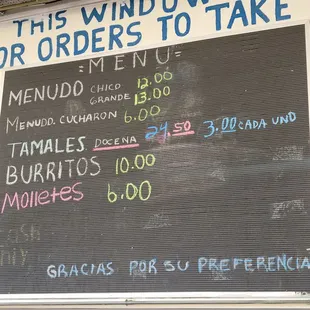 THIS WINDOW
OR ORDERS TO TAKE
=MENU=
MENUDO CHICO 12.00
GRANDE 13.00
MENUDO. CUCHARON 6.00
TAMALES DOCENA 24.50 3.00 CADA UNO
BURRITOS 10.00
MOlletes 6.00
GRACIAS POR SU PREFERENCIA